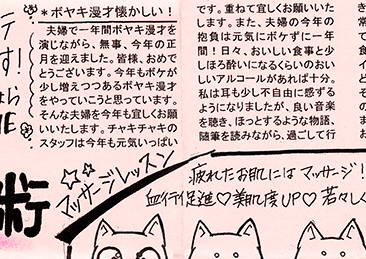 ＊ボヤキ漫才懐かしい！
夫婦で一年間ボヤキ漫才を
演じながら、無事、今年の正
月を迎えました。皆様、おめで
とうございます。今年もボケが
少し増えつつあるボヤキ漫才
をやっていこうと思っています。
そんな夫婦を今年も宜しくお願
いいたします。チャキチャキの
スタッフは今年も元気いっぱい
です。重ねて宜しくお願いいた
します。また、夫婦の今年の
抱負は元気にボケずに一年
間！日々、おいしい食事と少
しほろ酔いになるくらいのおい
しいアルコールがあれば十分。
私は耳も少し不自由に感ずる
ようになりましたが、良い音楽
を聴き、ほっとするような物語、
随筆を読みながら、過ごして行
術
マッサージレッスン
疲れたお肌にはマッサージ！
血行促進♡美肌度UP♡若々しく